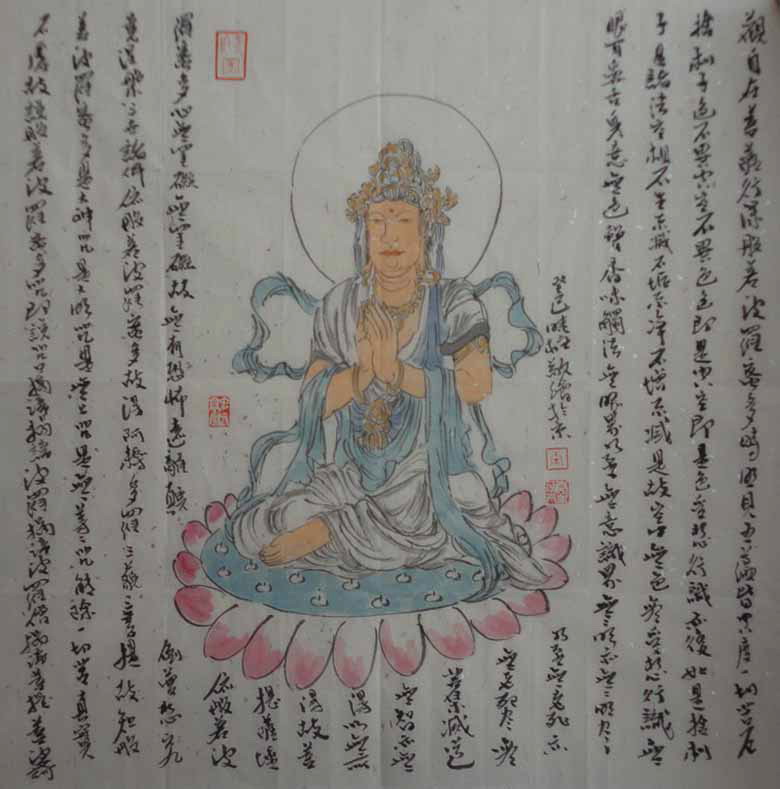 觀自在菩薩行深般若波羅蜜多時照見五蘊皆空度一切苦厄
捨利子色不異空空不異色色即是空空即是色受想行識亦復如是捨利
子是諸法空相不生不滅不垢不淨不增不減是故空中無色無受想行識無
眼耳鼻舌身意無色聲香味觸法無眼界乃至無意識界無無明亦無無明盡
乃至無老死亦
無老死盡無
苦集滅道
無智亦無
得以無所
得故菩
提薩埵
依般若波
羅蜜多心無罣礙無罣礙故無有恐怖遠離顛
倒夢想究
竟涅槃三世諸佛依般若波羅蜜多故得阿耨多羅三藐三菩提故知般
若波羅蜜多是大神咒是大明咒是無上咒是無等等咒能除一切苦真實
不虛故說般若波羅蜜多咒即說咒曰揭諦揭諦波羅揭諦波羅僧揭諦菩提薩婆訶
癸巳敬繪於京